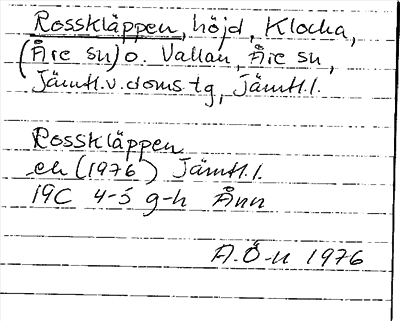 Rosskläppen, höjd, Klocka,
(Åre sn) o. Vallan, Åre sn,
Jämtl.v.doms tg, Jämtl.l.
Rosskläppen
ek (1976) Jämtl.l.
19C 4-5 g-h Ånn
A.Ö-n 1976